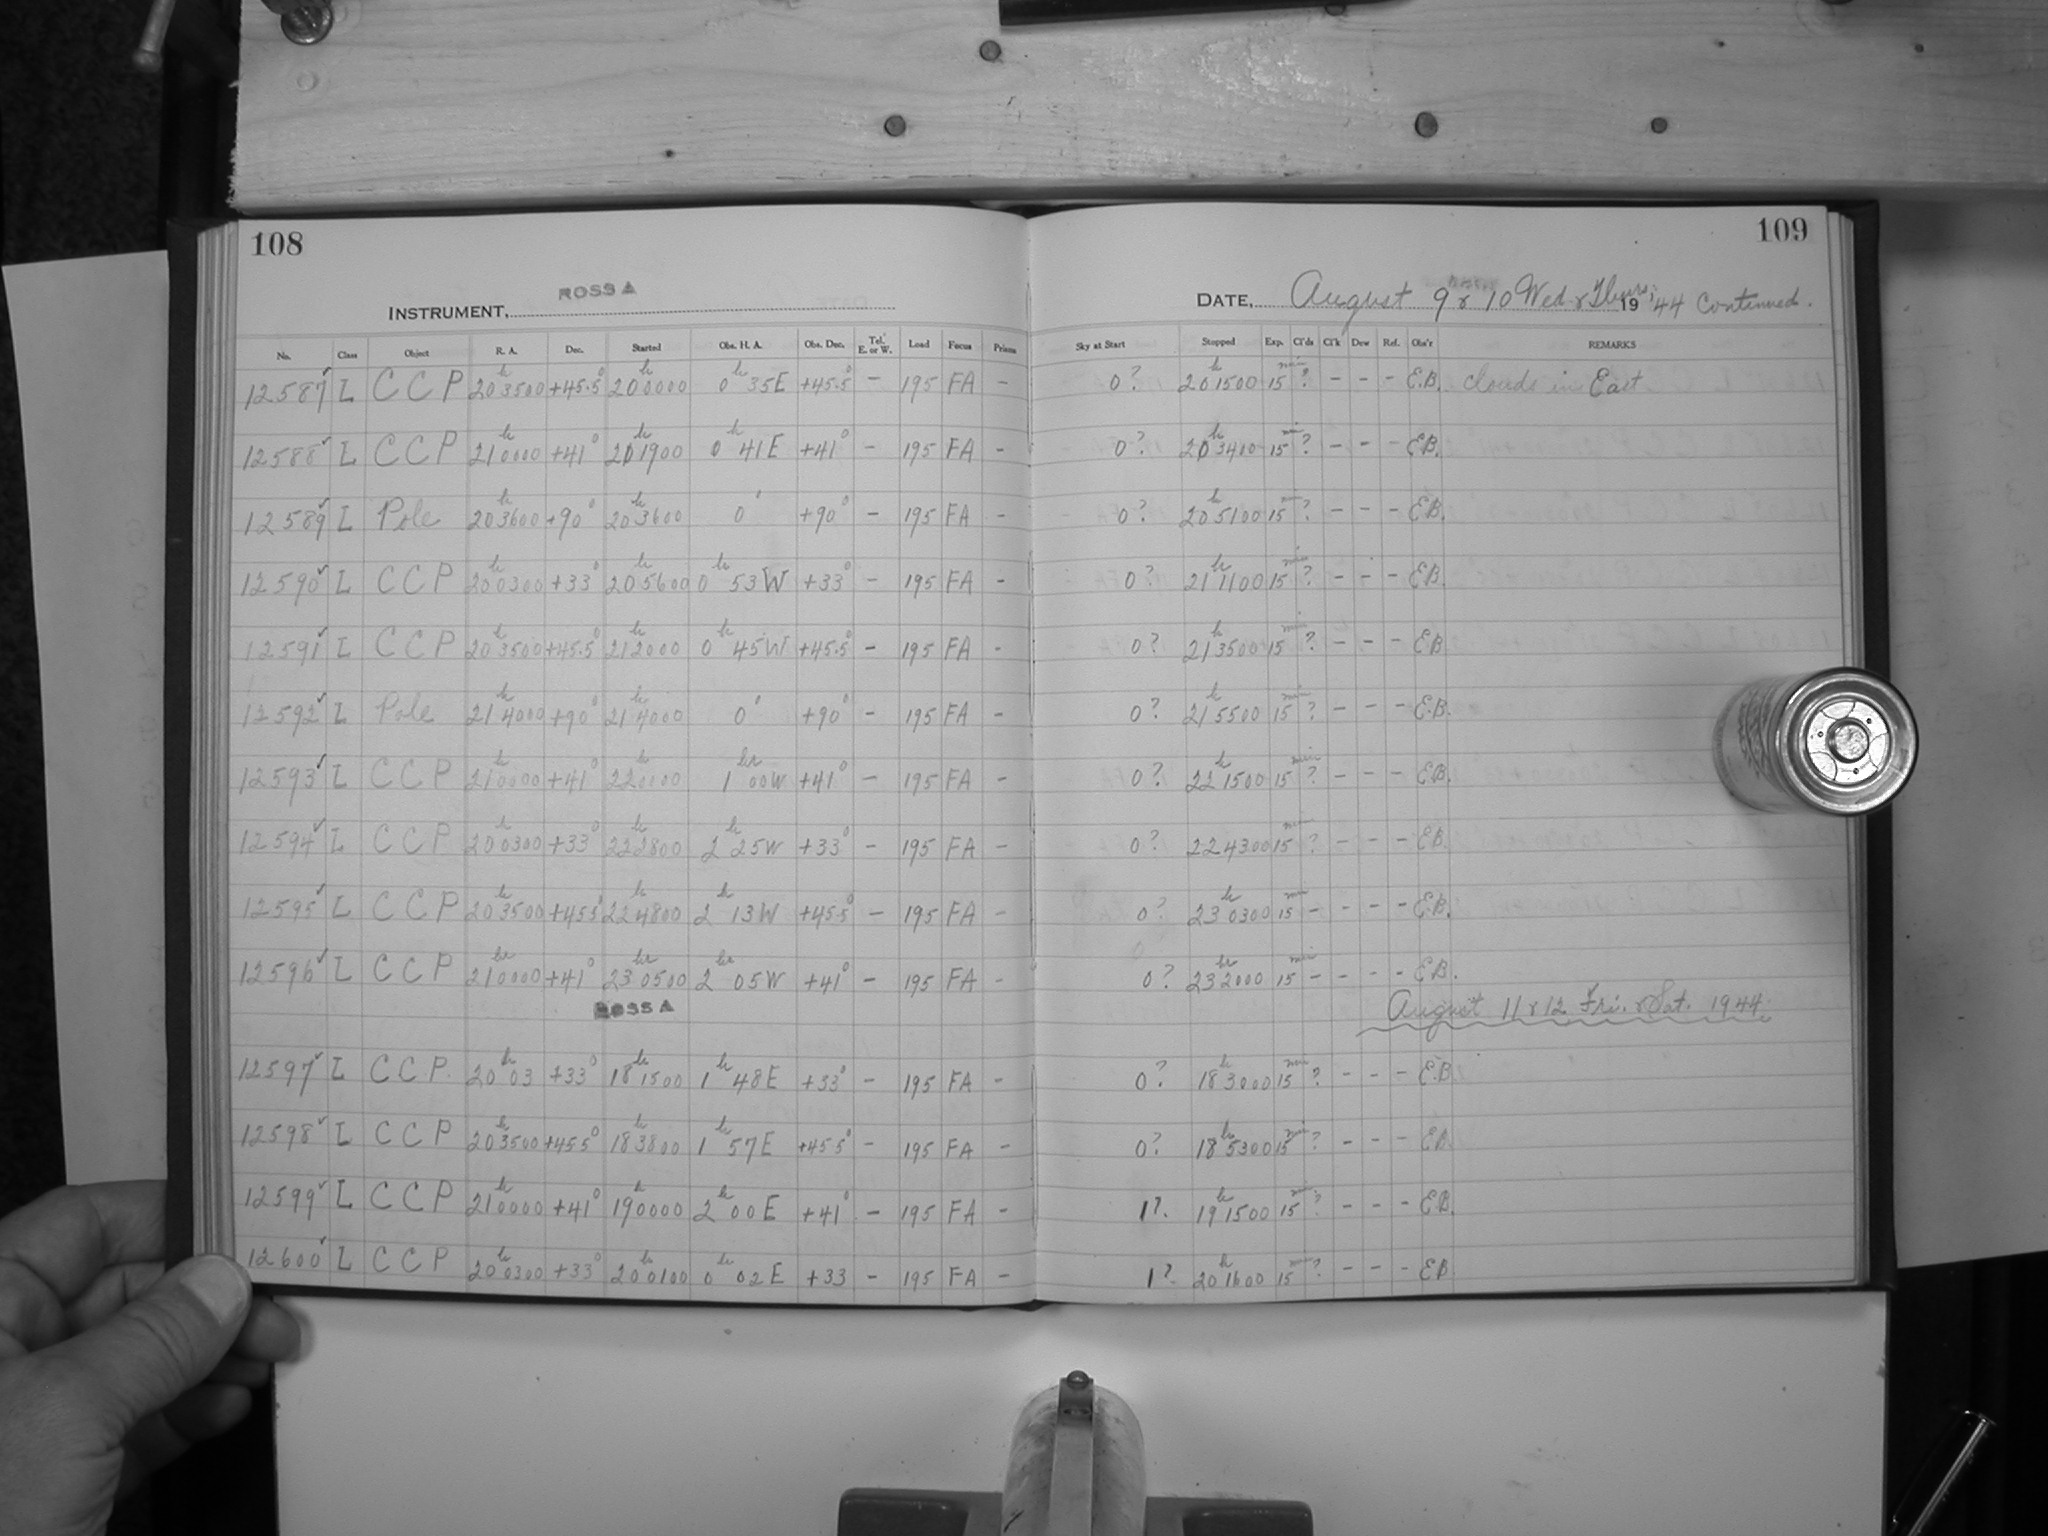 108
109
ROSS A
INSTRUMENT,
DATE, August 9 & 10 Wed & Thurs, 19 44 Continued.
No. Class Object R. A. Dec. Started Obs. H. A. Obs. Dec. Tel. E. or W. Load Focus Prism Sky at Start Stopped Exp. Cl'ds Cl'k Dew Ref. Obs'r REMARKS
12587✓ L CCP 20h3500 +45.5° 20h0000 0h 35E +45.5° - 195 FA - 0? 20h1500 15min ? - - - E.B. clouds in East
12588✓ L CCP 21h0000 +41° 20h1900 0h 41E +41° - 195 FA - 0? 20h3400 15min ? - - - E.B.
12589✓ L Pole 20h3600 +90° 20h3600 0' +90° - 195 FA - 0? 20h5100 15min ? - - - E.B.
12590✓ L CCP 20h0300 +33° 20h5600 0h 53W +33° - 195 FA - 0? 21h1100 15min ? - - - E.B.
12591✓ L CCP 20h3500 +45.5° 21h2000 0h 45W +45.5° - 195 FA - 0? 21h3500 15min ? - - - E.B.
12592✓ L Pole 21h4000 +90° 21h4000 0' +90° - 195 FA - 0? 21h5500 15min ? - - - E.B.
12593✓ L CCP 21h0000 +41° 1hr 00W +41° - 195 FA - 0? 22h1500 15min ? - - - E.B.
12594✓ L CCP 20h0300 +33° 22h2800 2h 25W +33° - 195 FA - 0? 224300 15min ? - - - E.B.
12595✓ L CCP 20h3500 +455° 22h4800 2h 13W +45.5° - 195 FA - 0? 23h0300 15min - - - - E.B.
12596✓ L CCP 21hr0000 +41° 23hr0500 2hr 05W +41° - 195 FA - 0? 23hr2000 15min - - - - E.B.
ROSS A August 11 & 12 Fri. & Sat. 1944.
12597✓ L CCP. 20h03 +33° 18h1500 1h 48E +33° - 195 FA - 0? 18h3000 15min ? - - - E.B.
12598✓ L CCP 20h3500 +455° 18h3800 1h 57E +455° - 195 FA - 0? 18h5300 15min ? - - - E.B.
12599✓ L CCP 21h0000 +41° 19h0000 2h 00E +41° - 195 FA - 1?. 19h1500 15min ? - - - E.B.
12600✓ L CCP 20h0300 +33° 20h0100 0h 02E +33 - 195 FA - 1? 20h1600 15min ? - - - E.B